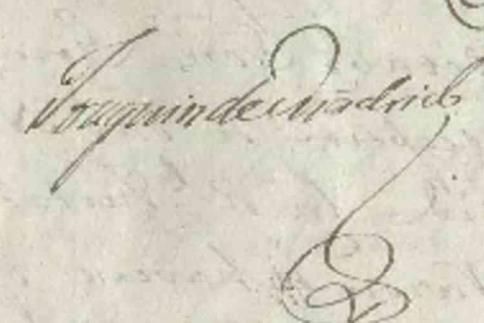 Joaquin de Madrid